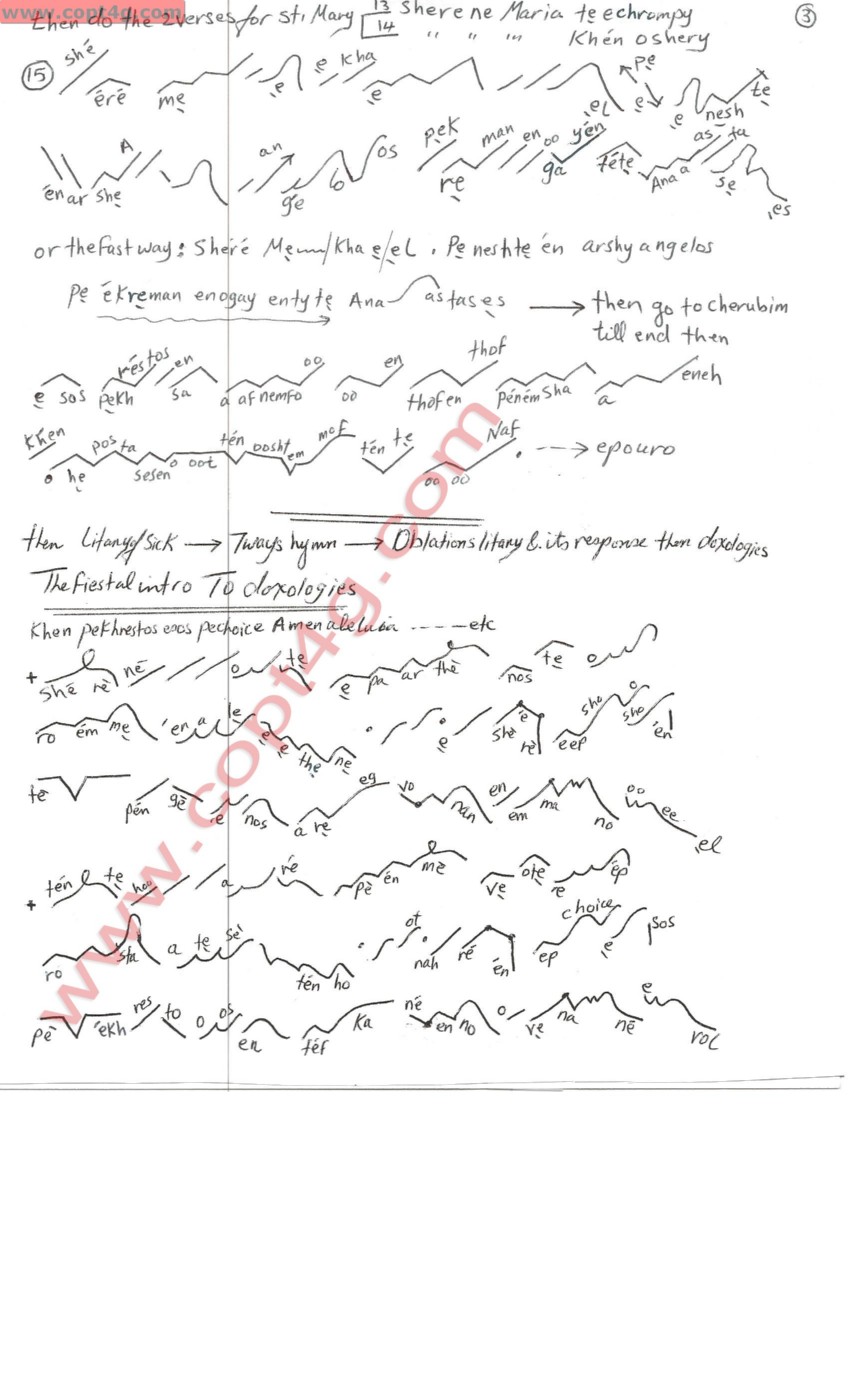 www.copt4g.com
then do the 2verses for st. Mary 13 Sherene Maria te echrompy 3
14 " " " Khén oshery
15 shé éré me e e kha e el pe e e nesh te
én ar she A an ge o os pek re man en oo ga yén téte Ana a as ta se es
or the fast way: Sheré Me/kha e/el . Pe neshte én arshy angelos
Pe ékreman enogay entyte Ana as tas es → then go to cherubim
till end then
e sos pekh réstos en sa a af nemfo oo oo en thof en thof péném sha a eneh
Khen o he pos ta sesen o oot tén oosht em mof tén te oo oo Naf . ---> epouro
then Litany of Sick → 7ways hymn → Oblations litany & its response then doxologies
The fiestal intro To doxologies
Khen pekhrestos esos pechoice Amen aleluia ----- etc
+ shé rè né o te e pa ar thè nos te o
ro ém me en a le e e the ne e she é rè eep sho o she én
te pén gè e nos a re eg vo nan en em ma no oo ee el
+ tén te hoo a ré pè én mè ve ote re ép
ro sta a te sè tén ho ot nah ré én ep choice e sos
pè ékh res to o os en féf ka né en no o ve na né e rol